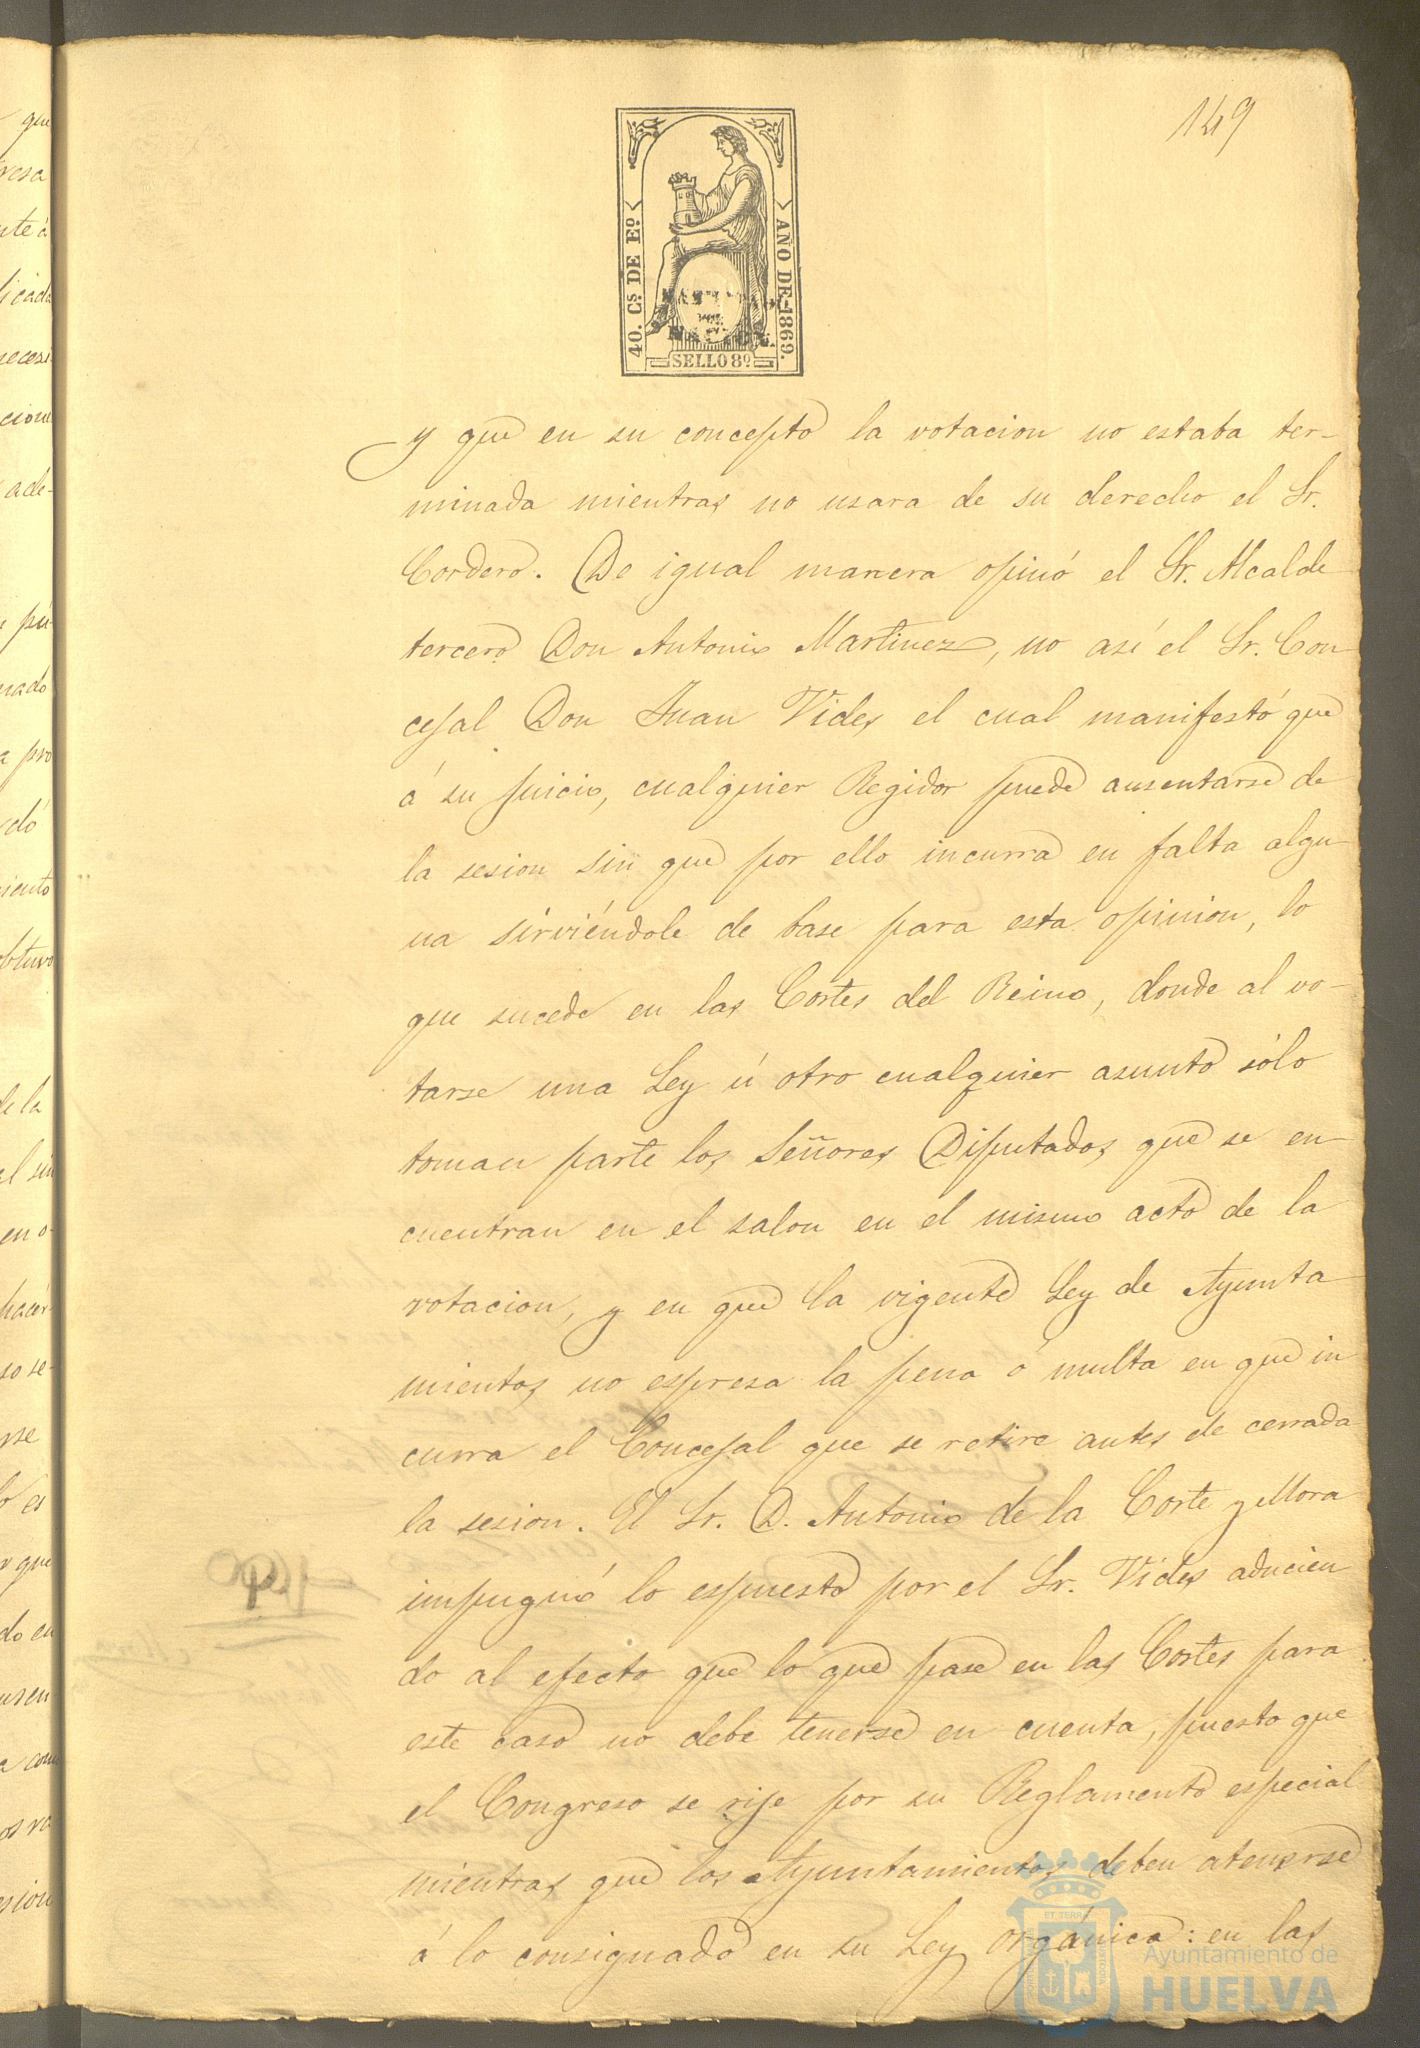 149
40. Cs. DE Eo.
AÑO DE 1869.
SELLO 8º
y que en su concepto la votacion no estaba ter-
minada mientras no usara de su derecho el Sr.
Cordero. De igual manera opinó el Sr. Alcalde
tercero Don Antonio Martinez, no así el Sr. Con
cejal Don Juan Vides el cual manifestó que
á su juicio, cualquier Regidor puede ausentarse de
la sesion sin que por ello incurra en falta algu-
na sirviéndole de base para esta opinion, lo
que sucede en las Cortes del Reino, donde al vo-
tarse una Ley ú otro cualquier asunto sólo
toman parte los Señores Diputados que se en
cuentran en el salon en el mismo acto de la
votacion, y en que la vigente Ley de Ayunta
mientos no espresa la pena ó multa en que in
curra el Concejal que se retire antes de cerrada
la sesion. El Sr. D. Antonio de la Corte y Mora
impugnó lo espuesto por el Sr. Vides aducien
do al efecto que lo que pase en las Cortes para
este caso no debe tenerse en cuenta, puesto que
el Congreso se rije por su Reglamento especial
mientras que los Ayuntamientos deben atenerse
á lo consignado en su Ley orgánica: en las
Ayuntamiento de
HUELVA